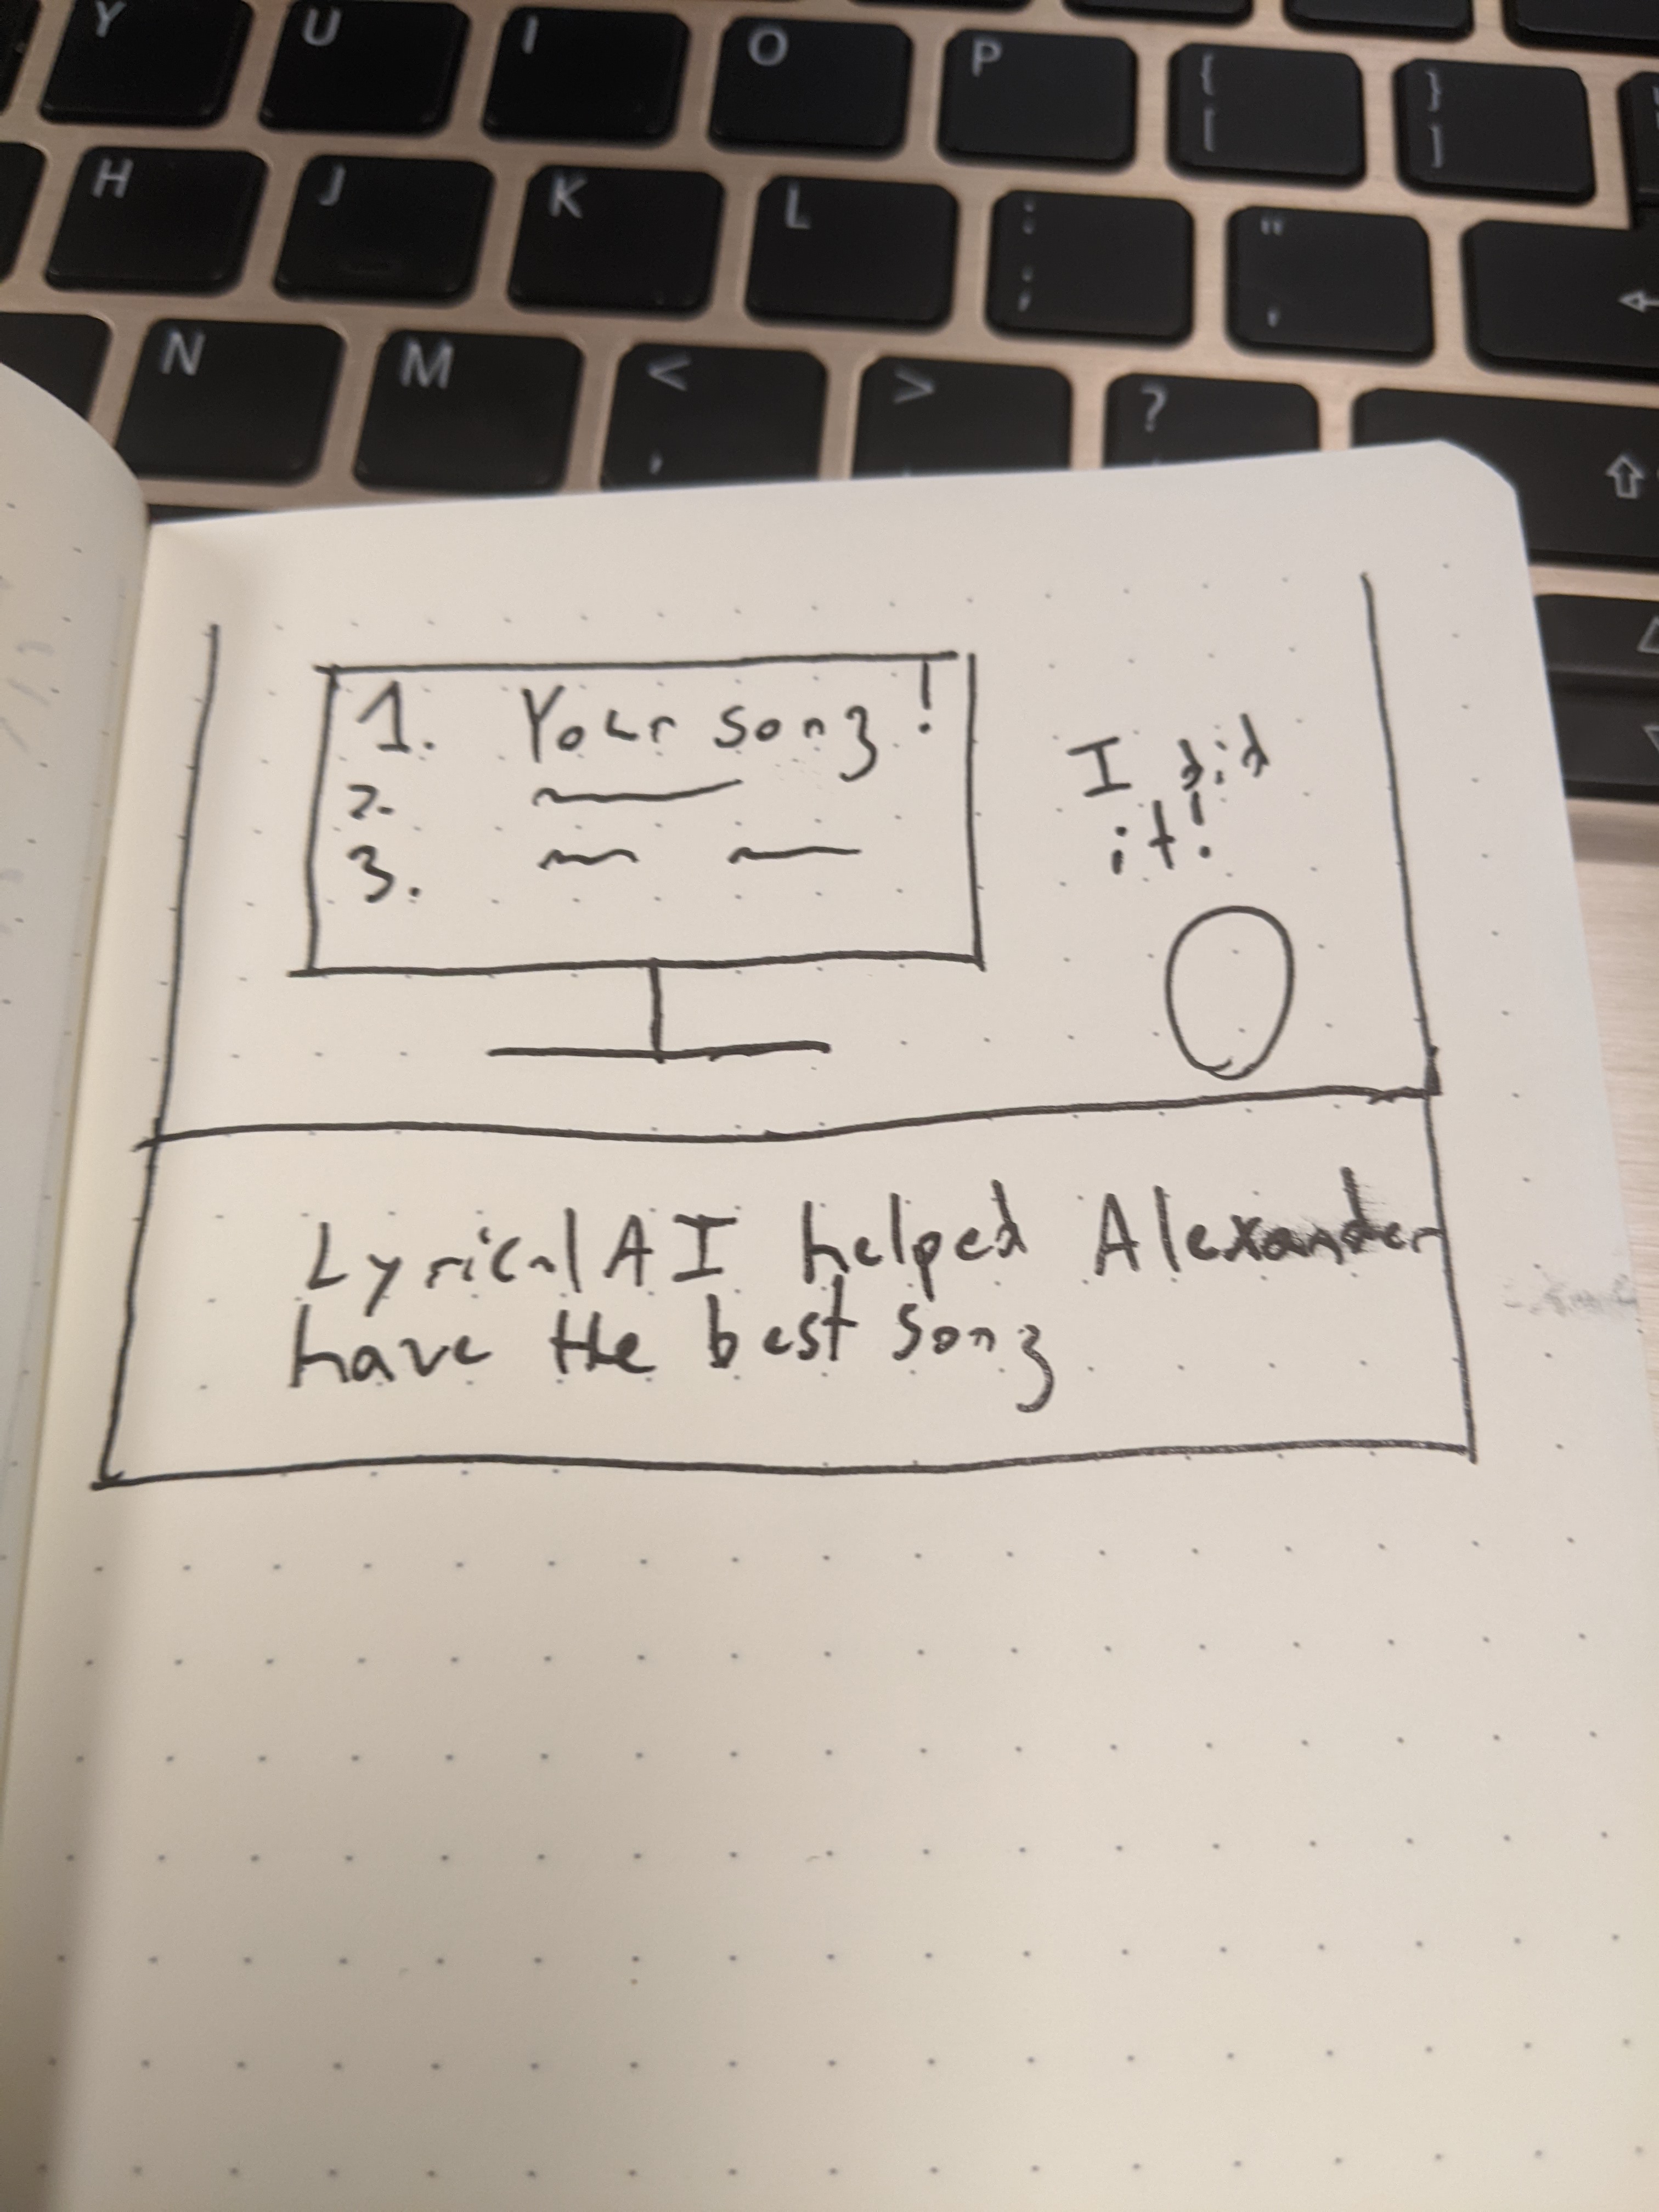 Y U I O P { [ } ]
H J K L : ; " '
N M < , > ?
1. Your song!
2.
3.
I did
it!
LyricalAI helped Alexander
have the best song